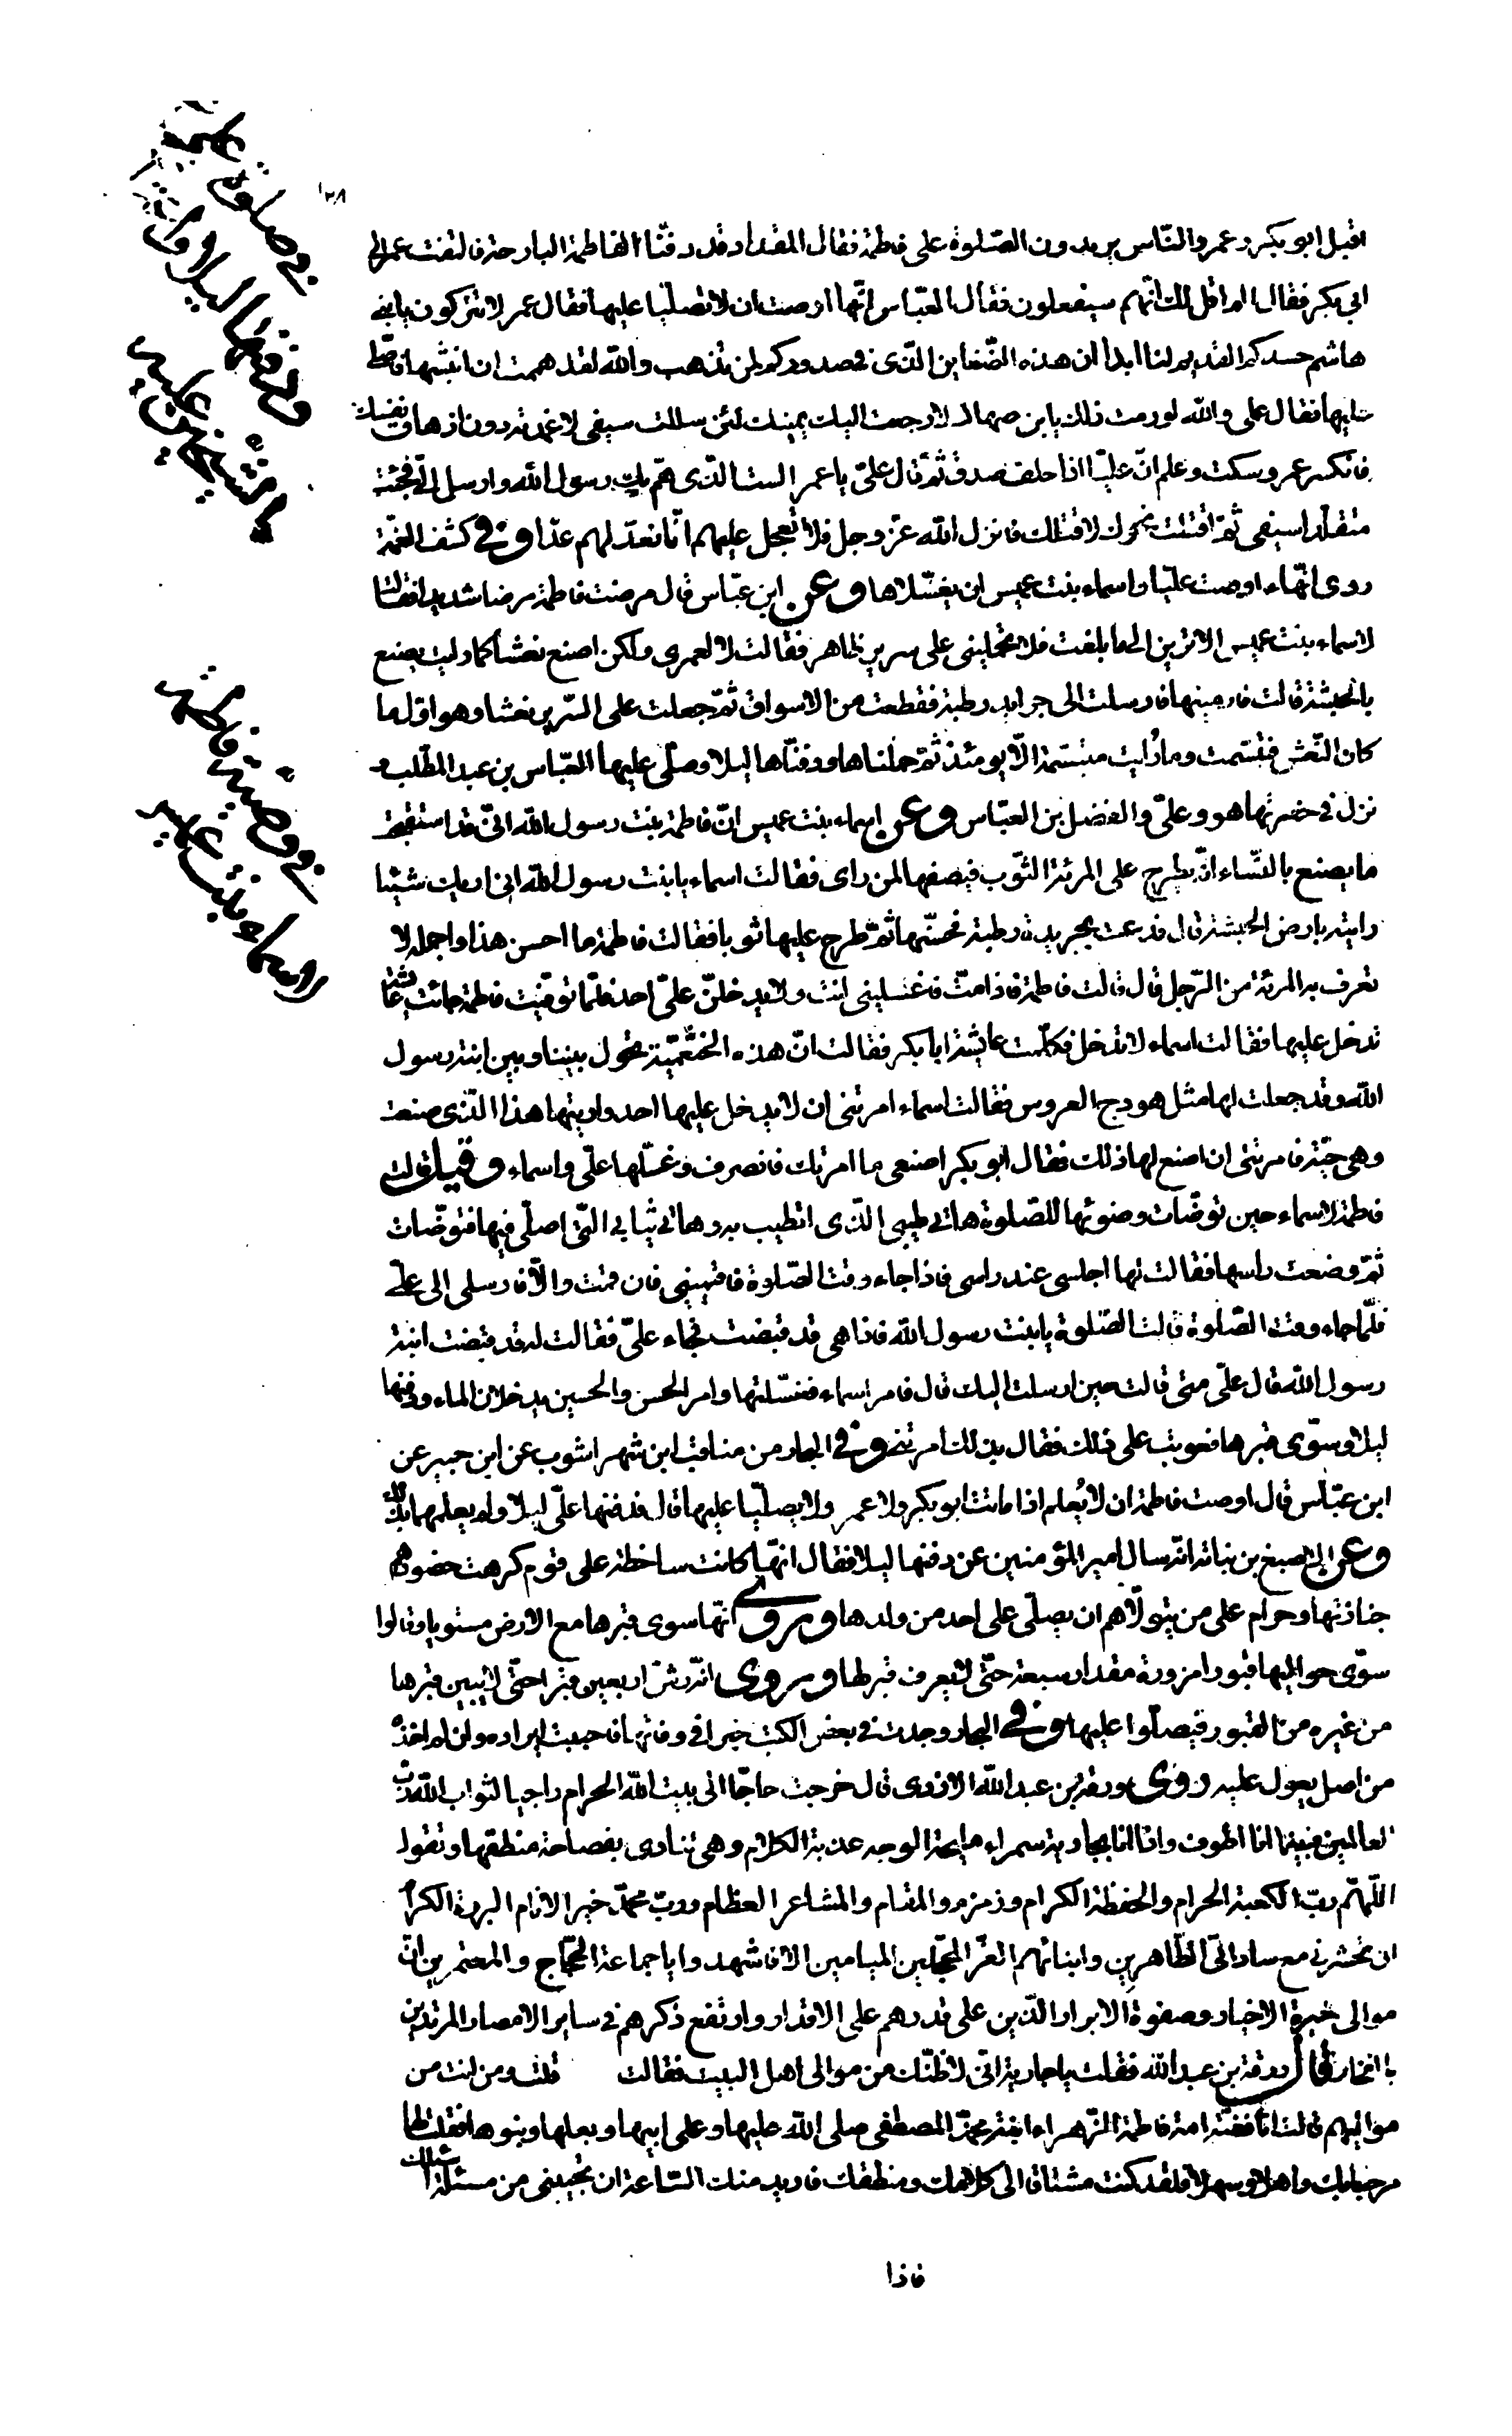 ١٢٨
اقبل ابو بكر وعمر والنّاس يريدون الصّلوة على فاطمة فقال المقداد قد دفنّا الفاطمة البارحة فالتفت عمر الى
ابي بكر فقال الم اقل لك انّهم سيفعلون فقال العبّاس انّها اوصت ان لا تصلّيا عليها فقال عمر لا تتركون يا بنى
هاشم حسدكم القديم لنا ابدا ان هذه الضّغاين الّتى فى صدوركم لن تذهب والله لقد هممت ان انبشها فاصلّى
عليها فقال على والله لو رمت ذلك يا بن صهاك لا رجعت اليك يمينك لئن سللت سيفى لا غمدته دون ازهاق نفسك
فانكسر عمر وسكت وعلم انّ عليّا اذا حلف صدق ثمّ قال علىّ يا عمر الست الّذى همّ بك رسول الله وارسل الىّ فجئت
متقلّدا سيفى ثمّ اقبلت نحوك لاقتلك فانزل الله عزّ وجل فلا تعجل عليهم انّما نعدّ لهم عدّا وفى كشف الغمّة
روى انّها ء اوصت عليّا واسماء بنت عميس ان يغسّلاها وعن ابن عبّاس قال مرضت فاطمة مرضا شديدا فقالت
لاسماء بنت عميس الا ترين الى ما بلغت فلا تحملينى على سرير ظاهر فقالت لا لعمرى ولكن اصنع نعشا كما رايت يصنع
بالحبشة قالت فارينيها فارسلت الى جرايد رطبة فقطعت من الاسواق ثمّ جعلت على السّرير نعشا وهو اوّل ما
كان النّعش فتبسّمت وما رُايت متبسّمة الّا يومئذ ثمّ حملناها ودفنّاها ليلا وصلّى عليها العبّاس بن عبد المطّلب و
نزل فى حفرتها هو وعلىّ والفضل بن العبّاس وعن اسماء بنت عميس انّ فاطمة بنت رسول الله انّى قد استقبحت
ما يصنع بالنّساء انّه يطرح على المرئة الثّوب فيصفها لمن راى فقالت اسماء يا بنت رسول الله انى اريك شيئا
رايته بارض الحبشة قال فدعت بجريدة رطبة فحسّنها ثمّ طرح عليها ثوبا فقالت فاطمة ما احسن هذا واجمله لا
تعرف به المرئة من الرّجل قال قالت فاطمة فاذا متّ فاغسلينى انت ولا يدخلنّ علىّ احد فلمّا توفّيت فاطمة جائت عايشة
تدخل عليها فقالت اسماء لا تدخل فكلّمت عايشة ابا بكر فقالت انّ هذه الخثعميّة تحول بيننا وبين ابنة رسول
الله وقد جعلت لها مثل هودج العروس فقالت اسماء امرتنى ان لا يدخل عليها احد واريتها هذا الّذى صنعت
وهى حيّة فامرتنى ان اصنع لها ذلك فقال ابو بكر اصنعى ما امرتك فانصرف وغسّلها علىّ واسماء وقيل قالت
فاطمة لاسماء حين توضّات وضوئها للصّلوة هاتى طيبى الّذى اتطيب به وهاتى ثيابى الّتى اصلّى فيها فتوضّات
ثمّ وضعت راسها فقالت لها اجلسى عند راسى فاذا جاء وقت الصّلوة فاقيمينى فان قمت والّا فارسلى الى علىّ
فلمّا جاء وقت الصّلوة قالت الصّلوة يا بنت رسول الله فاذا هى قد قبضت فجاء علىّ فقالت له قد قبضت ابنة
رسول الله قال علىّ متى قالت حين ارسلت اليك قال فامر اسماء فغسّلتها وامر الحسن والحسين يدخلان الماء ودفنها
ليلا وسوّى قبرها فعوتب على ذلك فقال بذلك امرتنى وفى البحار من مناقب ابن شهر اشوب عن ابن جبير عن
ابن عبّاس قال اوصت فاطمة ان لا يُعلم اذا ماتت ابو بكر ولا عمر ولا يصلّيا عليها قال فدفنها علىّ ليلا ولم يعلمهما بذلك
وعن الاصبغ بن نباتة انّه سال امير المؤمنين عن دفنها ليلا فقال انّها كانت ساخطة على قوم كرهت حضورهم
جنازتها وحرام على من يتولّاهم ان يصلّى على احد من ولدها وروى انّها سوى قبرها مع الارض مستويا وقالوا
سوّى حواليها قبورا مزورة مقدار سبعة حتّى لا يعرف قبرها وروى انّه رشّ اربعين قبرا حتّى لا يبين قبرها
من غيره من القبور فيصلّوا عليها وفى البحار وجدت فى بعض الكتب خبرا فى وفاتها فاحببت ايراده وان لم اخذه
من اصل يعول عليه روى ورقة بن عبد الله الازدى قال خرجت حاجّا الى بيت الله الحرام راجيا لثواب الله ربّ
العالمين فبينما انا اطوف واذا انا بجارية سمراء مليحة الوجه عذبة الكلام وهى تنادى بفصاحة منطقها وتقول
اللّهمّ ربّ الكعبة الحرام والحفظة الكرام وزمزم والمقام والمشاعر العظام وربّ محمّد خير الانام البررة الكرام
ان تحشرنى مع ساداتى الطّاهرين وابنائهم الغرّ المحجّلين الميامين الا فاشهدوا يا جماعة الحجّاج والمعتمرين انّ
موالى خيرة الاخيار وصفوة الابرار الّذين على قدرهم على الاقدار وارتفع ذكرهم فى ساير الامصار المرتدين
بالفخار قال ورقة بن عبد الله فقلت يا جارية انّى لاظنّك من موالى اهل البيت فقالت قلت ومن انت من
مواليهم قالت انا فضّة امة فاطمة الزّهراء ابنة محمّد المصطفى صلى الله عليها وعلى ابيها وبعلها وبنوها فقلت لها
مرحبا بك واهلا وسهلا فلقد كنت مشتاقا الى كلامك ومنطقك فاريد منك السّاعة ان تجيبنى من مسئلة اسئلك
فاذا
ودفنها ليلا
فى وصيّة فاطمة
لاسماء بنت عميس